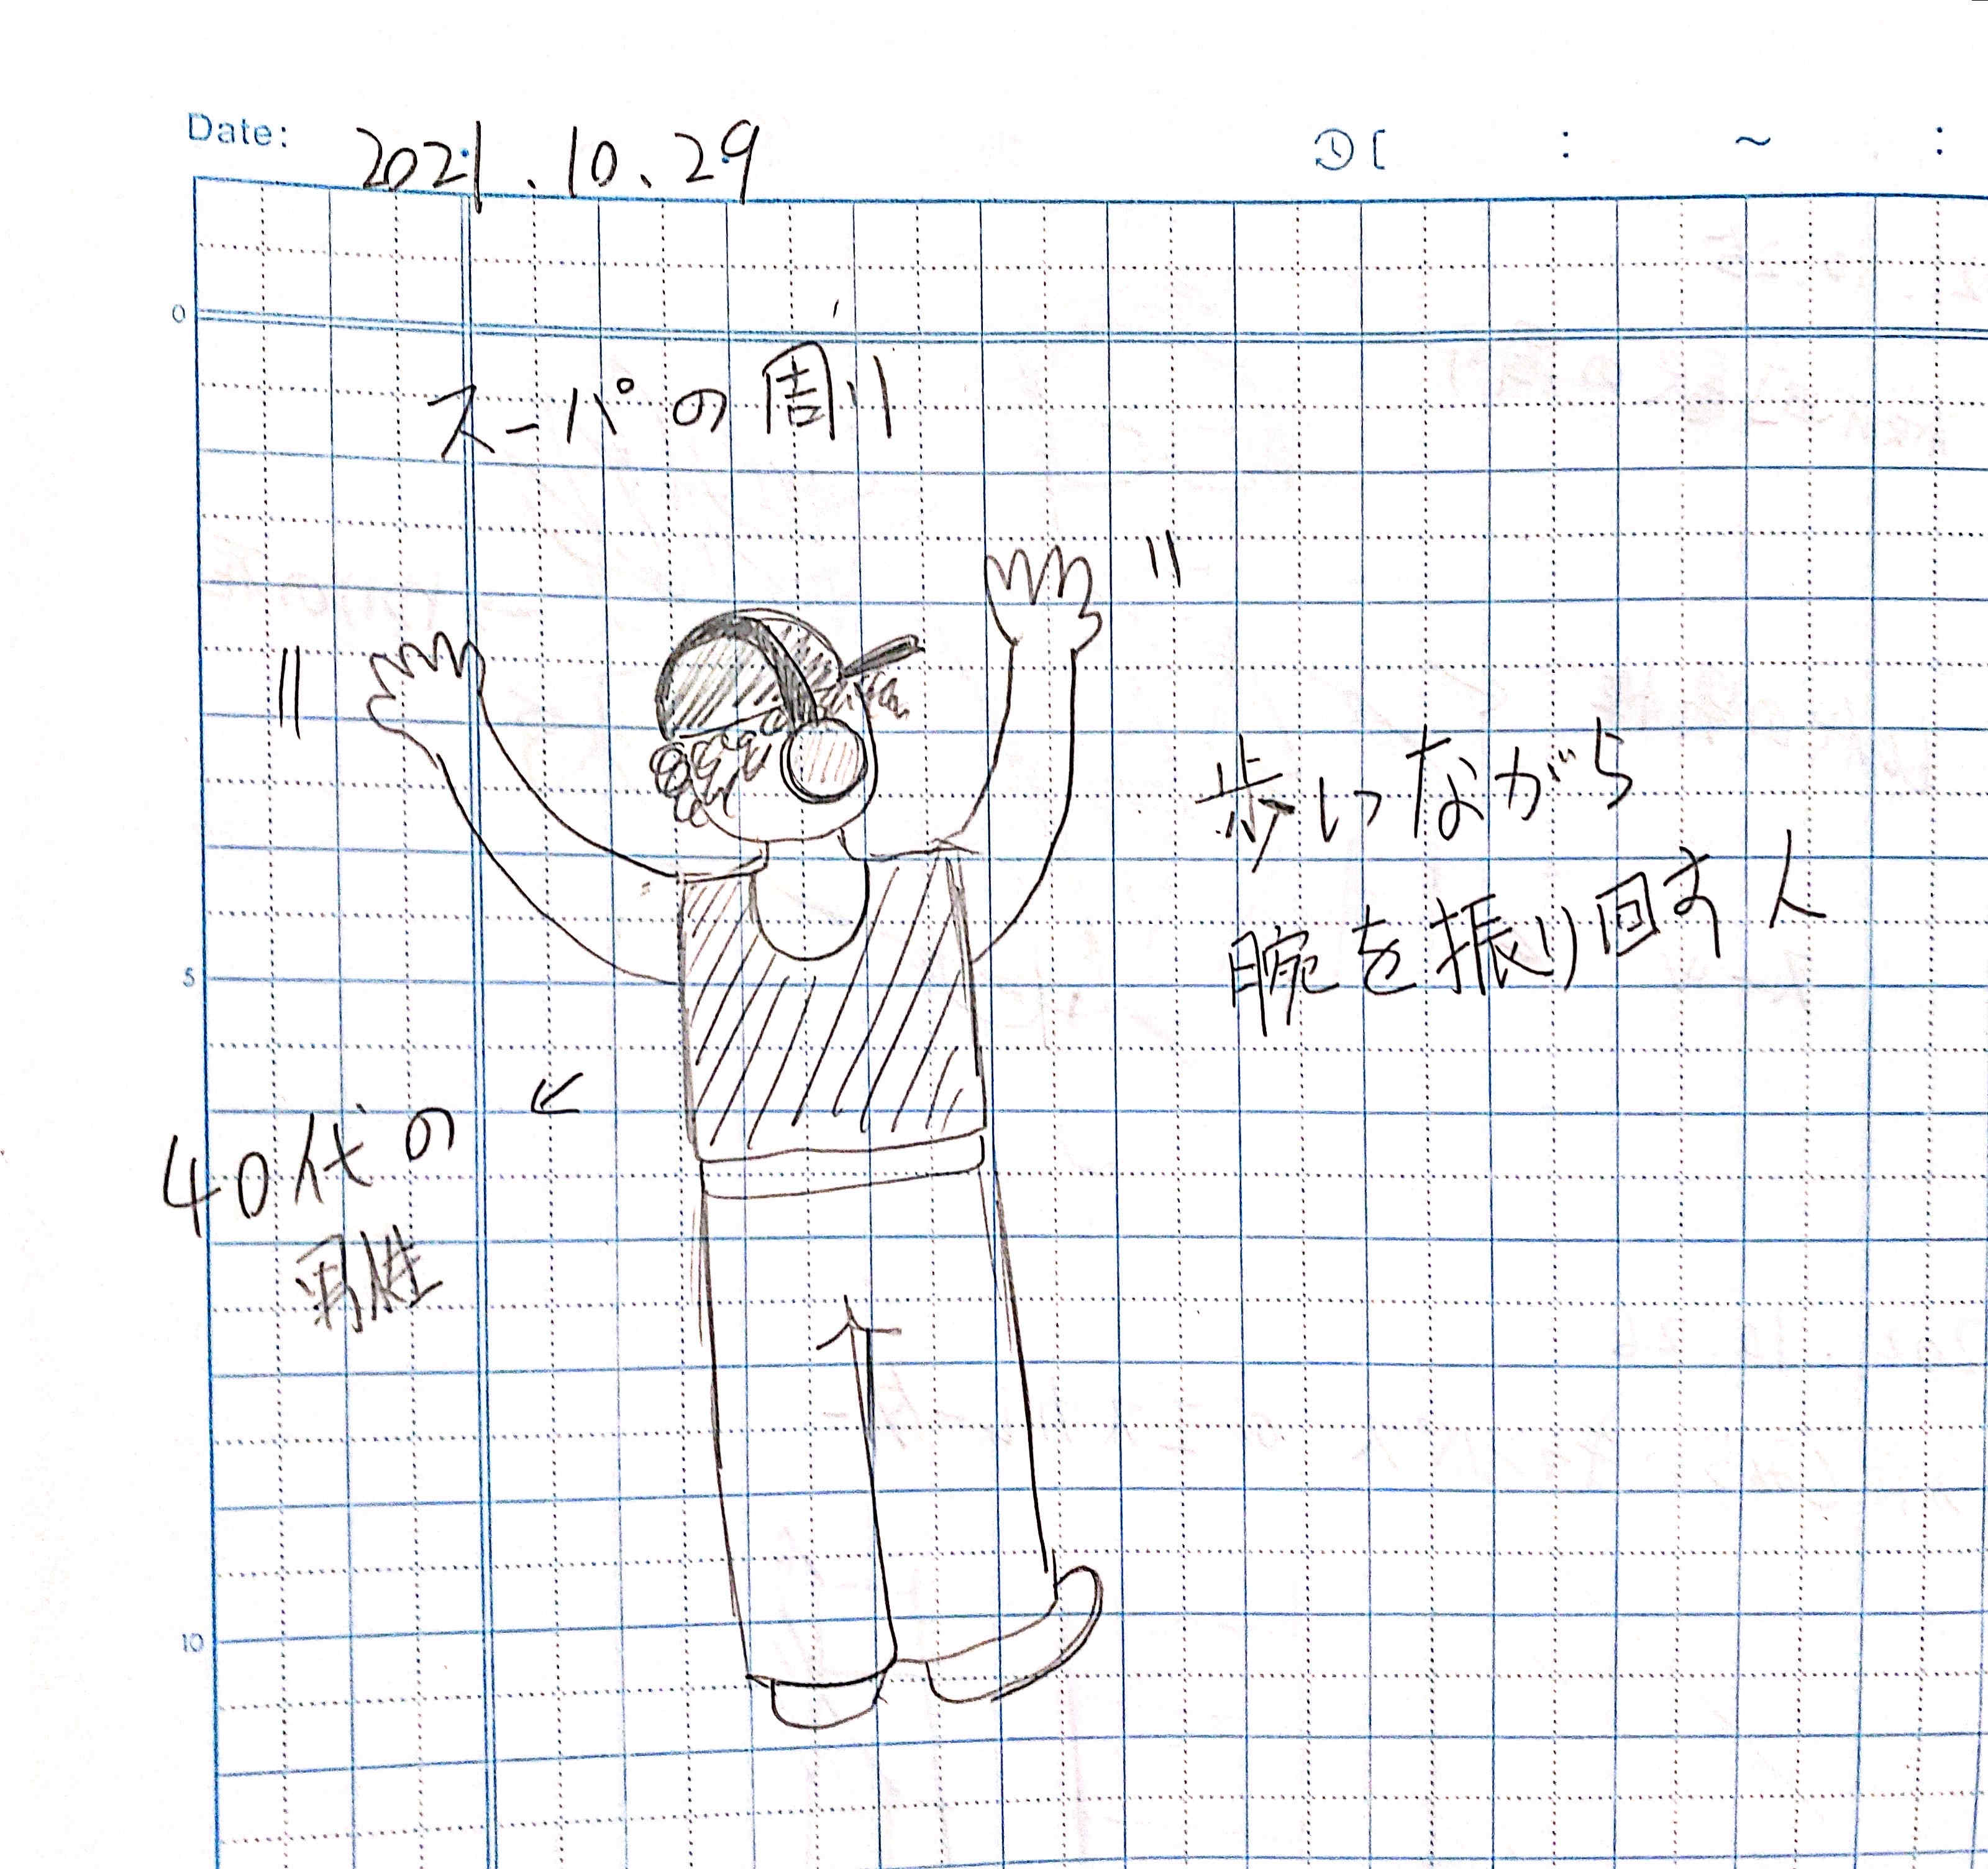 Date: 2021.10.29
: ~ :
0
スーパの周り
歩いながら
腕を振り回す人
5
40代の
男性
10